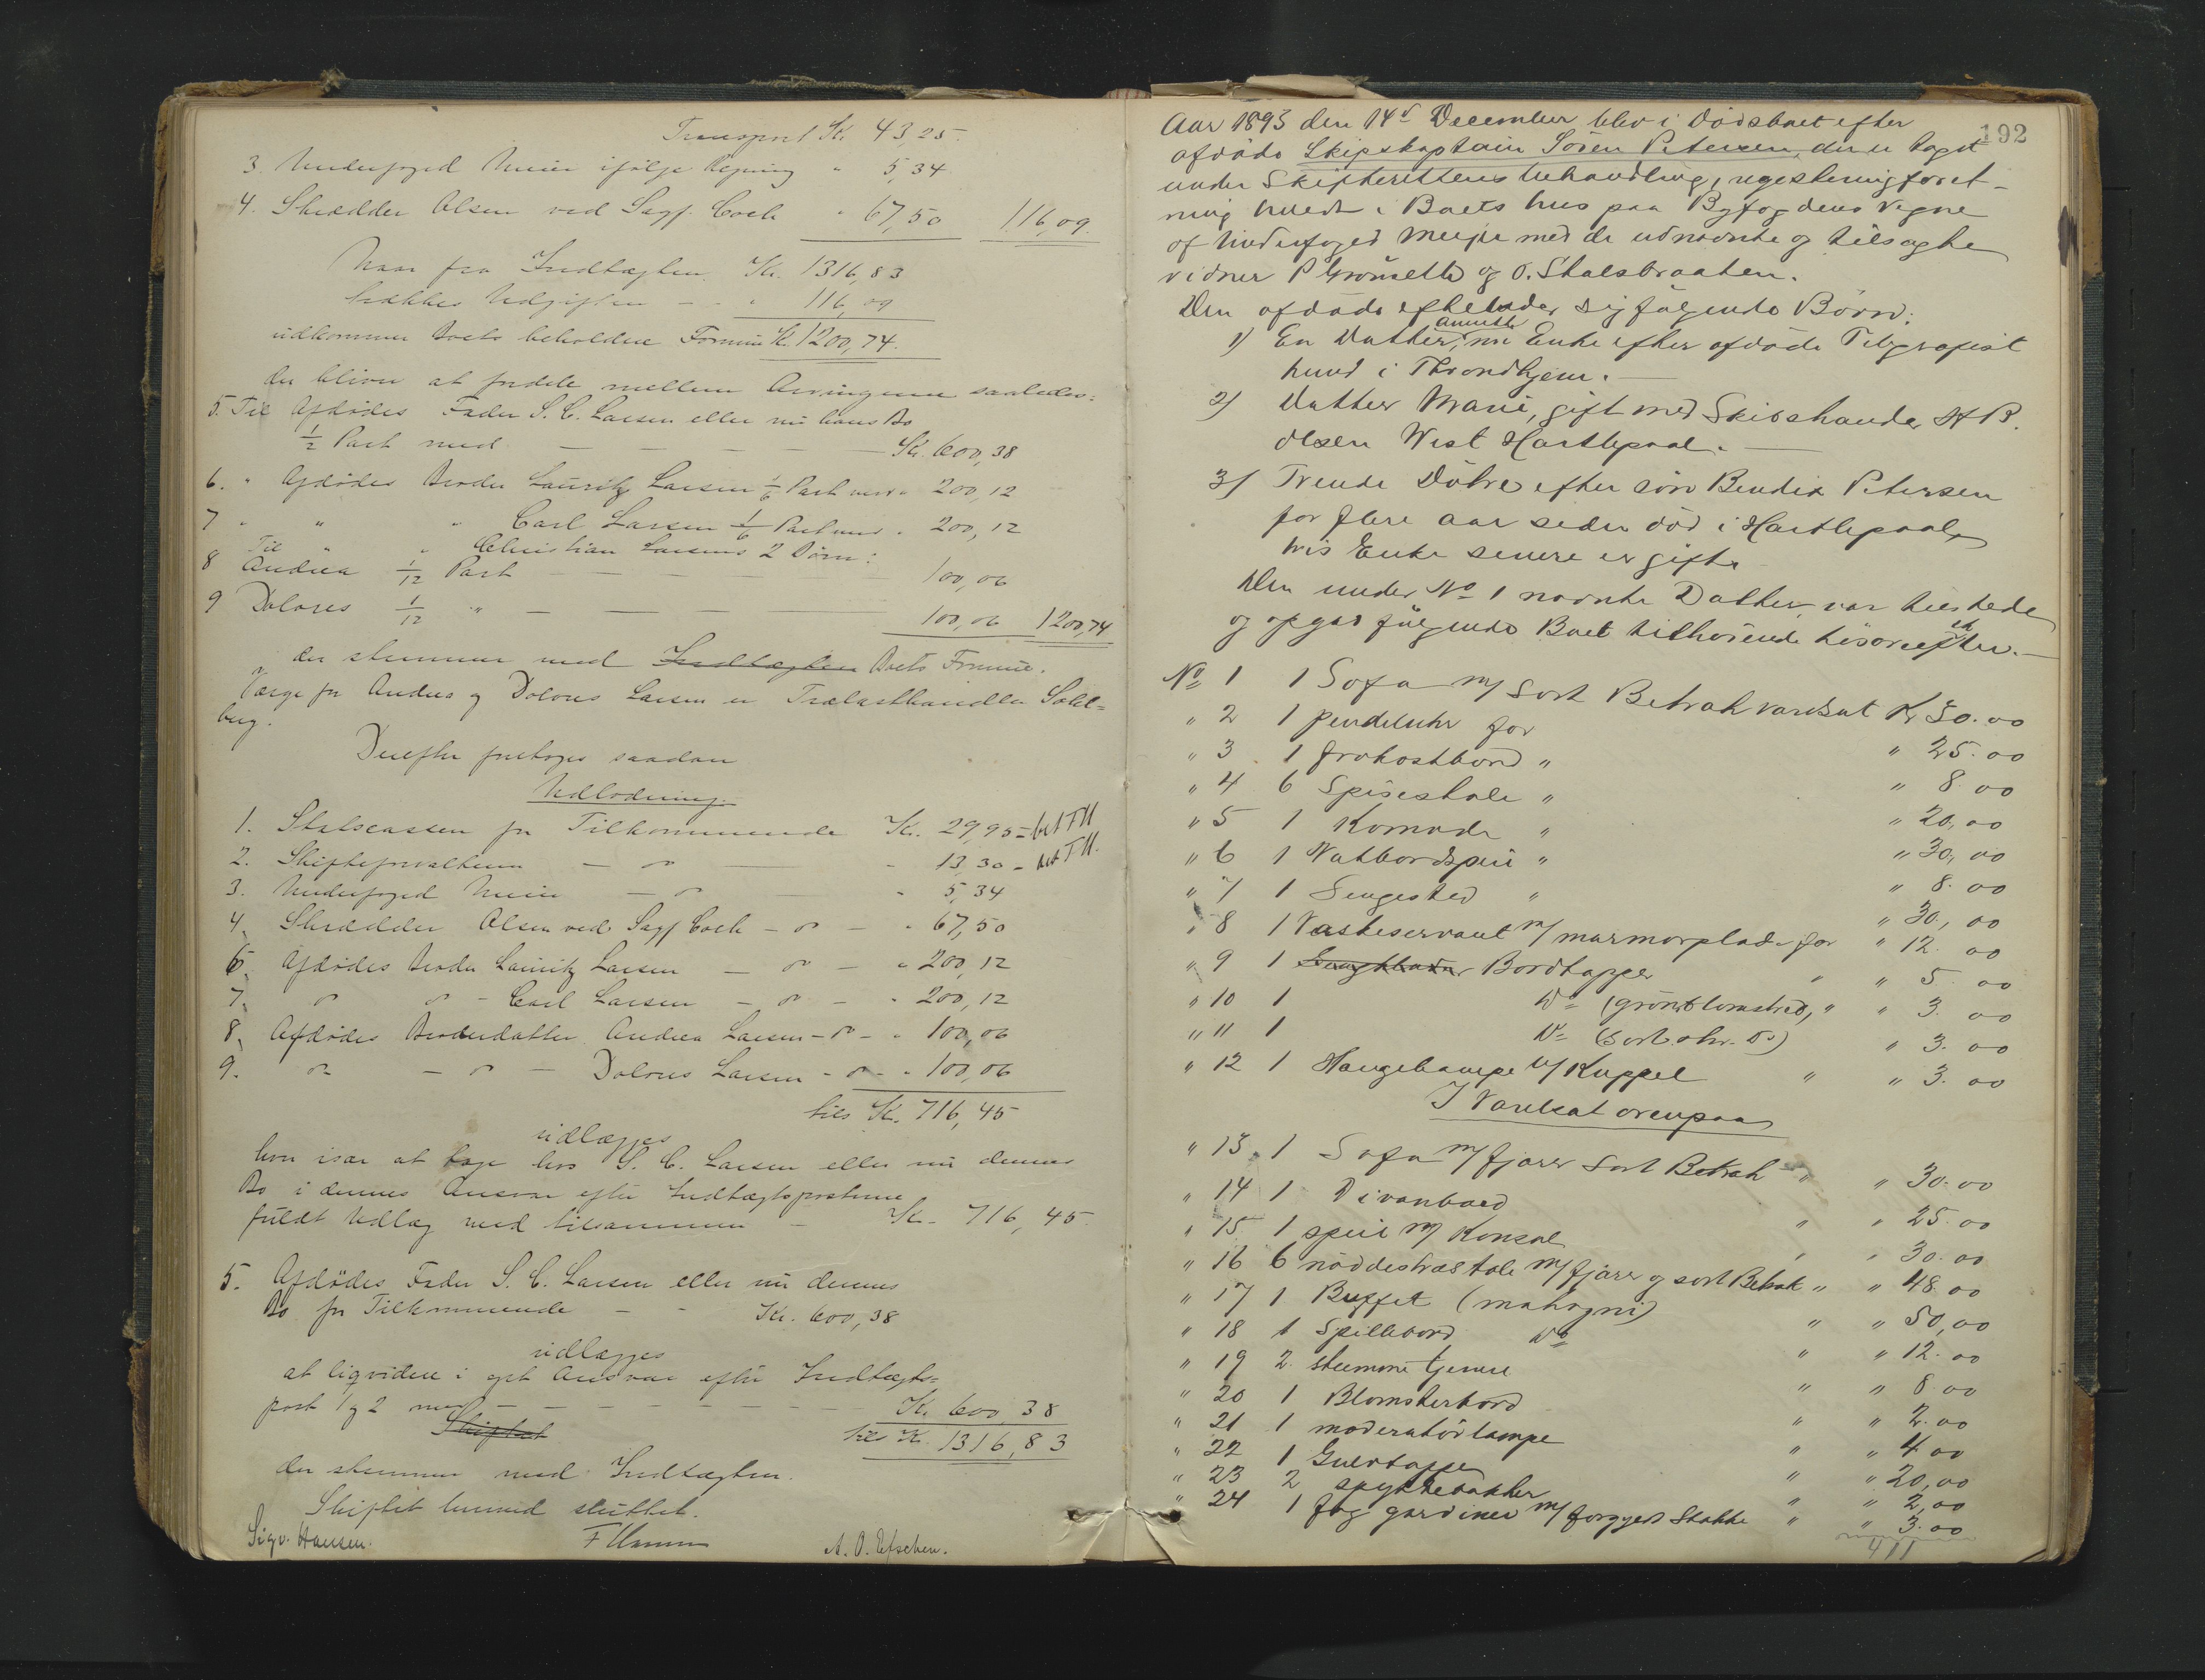 Transport Kr. 43,25.
3. Underfoged Meier ifölge Regning " 5,34
4. Skrædder Olsen ved Sagf. Coch " 67,50 116,09.
Naar fra Indtægten Kr. 1316,83
trækkes Udgiften - - " 116,09
udkommer Boets beholdne Formue Kr. 1200,74.
der bliver at fordele mellem Arvingerne saaledes:
5. Til Afdødes Fader S. C. Larsen eller nu hans Bo
1/2 Part med — — — — Kr. 600,38
6. " Afdødes Broder Lauritz Larsen 1/6 Part med " 200,12
7 " " " Carl Larsen 1/6 Part med " 200,12
Til " " Christian Larsens 2 Börn:
8 Andrea 1/12 Part — — — — 100,06
9 Dolores 1/12 " — — — — 100,06 1200,74
der stemmer med Indtægten Boets Formue.
Værge for Andrea og Dolores Larsen er Trælasthandler Sohl=
berg.
Derefter foretoges saadan
Udlodning.
1. Statscassen for Tilkommende Kr. 29,95 = bet FH
2. Skifteforvalteren — do — " 13,30 - bet FH.
3. Underfoged Meier — do — " 5,34
4. Skrædder Olsen ved Sagf Coch - do - " 67,50
6. Afdødes Broder Lauritz Larsen — do — " 200,12
7. do do - Carl Larsen - do - " 200,12
8. Afdødes Broderdatter Andrea Larsen - do - " 100,06
9. do - do - Dolores Larsen - do - " 100,06
tils Kr. 716,45
udlægges
hver især at tage hos S. C. Larsen eller nu dennes
Bo i dennes Ansvar efter Indtægtsposterne
fuldt Udlæg med tilsammen - Kr. 716,45.
5. Afdödes Fader S. C. Larsen eller nu dennes
Bo for Tilkommende - - Kr. 600,38
udlægges
at liqvidere i eget Ansvar efter Indtægts=
post 1 og 2 med — — — — Kr. 600,38
Skiftet tils Kr. 1316,83
der stemmer med Indtægten.
Skiftet hermed sluttet.
Sigv. Hansen. A. O. Efschen.
192
Aar 1893 den 14d December blev i Dödsboet efter
afdöde Skipskaptain Sören Petersen, der er taget
under Skifterettens behandling, registreringforret-
ning holdt i Boets hus paa Byfogdens Vegne
af Underfoged Meyer med de udnævnte og tilsagte
vidner P Grönseth og O. Stalsbraaten.
Den afdöde efterlader sig følgende Börn:
1) En Datter, Annette nu Enke efter afdöde Telegrafist
Lund i Throndhjem. —
2) Datter Marie, gift med Skibshandler H B.
Olsen West Hartlepool. —
3) Trende Dötre efter sön Bendix Petersen
for flere aar siden död i Hartlepool,
hvis Enke senere er gift.
Den under No 1 nævnte Datter var tilstede
og opgav fölgende Boet tilhörende lösöreeffekter. —
No 1 1 Sofa m/ Sort Betræk værdsat Kr 30.00
" 2 1 pendeluhr for " 25.00
" 3 1 frokostbord " " 8 00
" 4 6 Spisestole " " 20,00
" 5 1 Komode " " 30,00
" 6 1 Natbordspeil " " 8.00
" 7 1 Sengested " " 30,00
" 8 1 Vaskeservant m/ marmorplade for " 12.00
" 9 1 Bordtæpper " " 5 00
" 10 1 Do (grönblomstred) " " 3.00
" 11 1 Do (Sort ohr. Do) " 3.00
" 12 1 Hængelampe m/ Kuppel " " 3.00
I Værelset ovenpaa
" 13 1 Sofa m/ fjærer sort Betræk " " 30.00
" 14 1 Divanbord " " 25.00
" 15 1 speil m/ Konsol " " 30.00
" 16 6 nöddetræstole m/ fjærer og sort Betræk " " 48.00
" 17 1 Buffet (mahogni) " " 50,00
" 18 1 Spillebord Do " " 12.00
" 19 2 stumme tjenere " " 8.00
" 20 1 Blomsterbord " " 2.00
" 21 1 moderatörlampe " " 4.00
" 22 1 Gulvtæppe " " 20,00
" 23 2 spyttebakker " " 2,00
" 24 1 fag gardiner m/ forgyldt Stokke " " 3.00
411